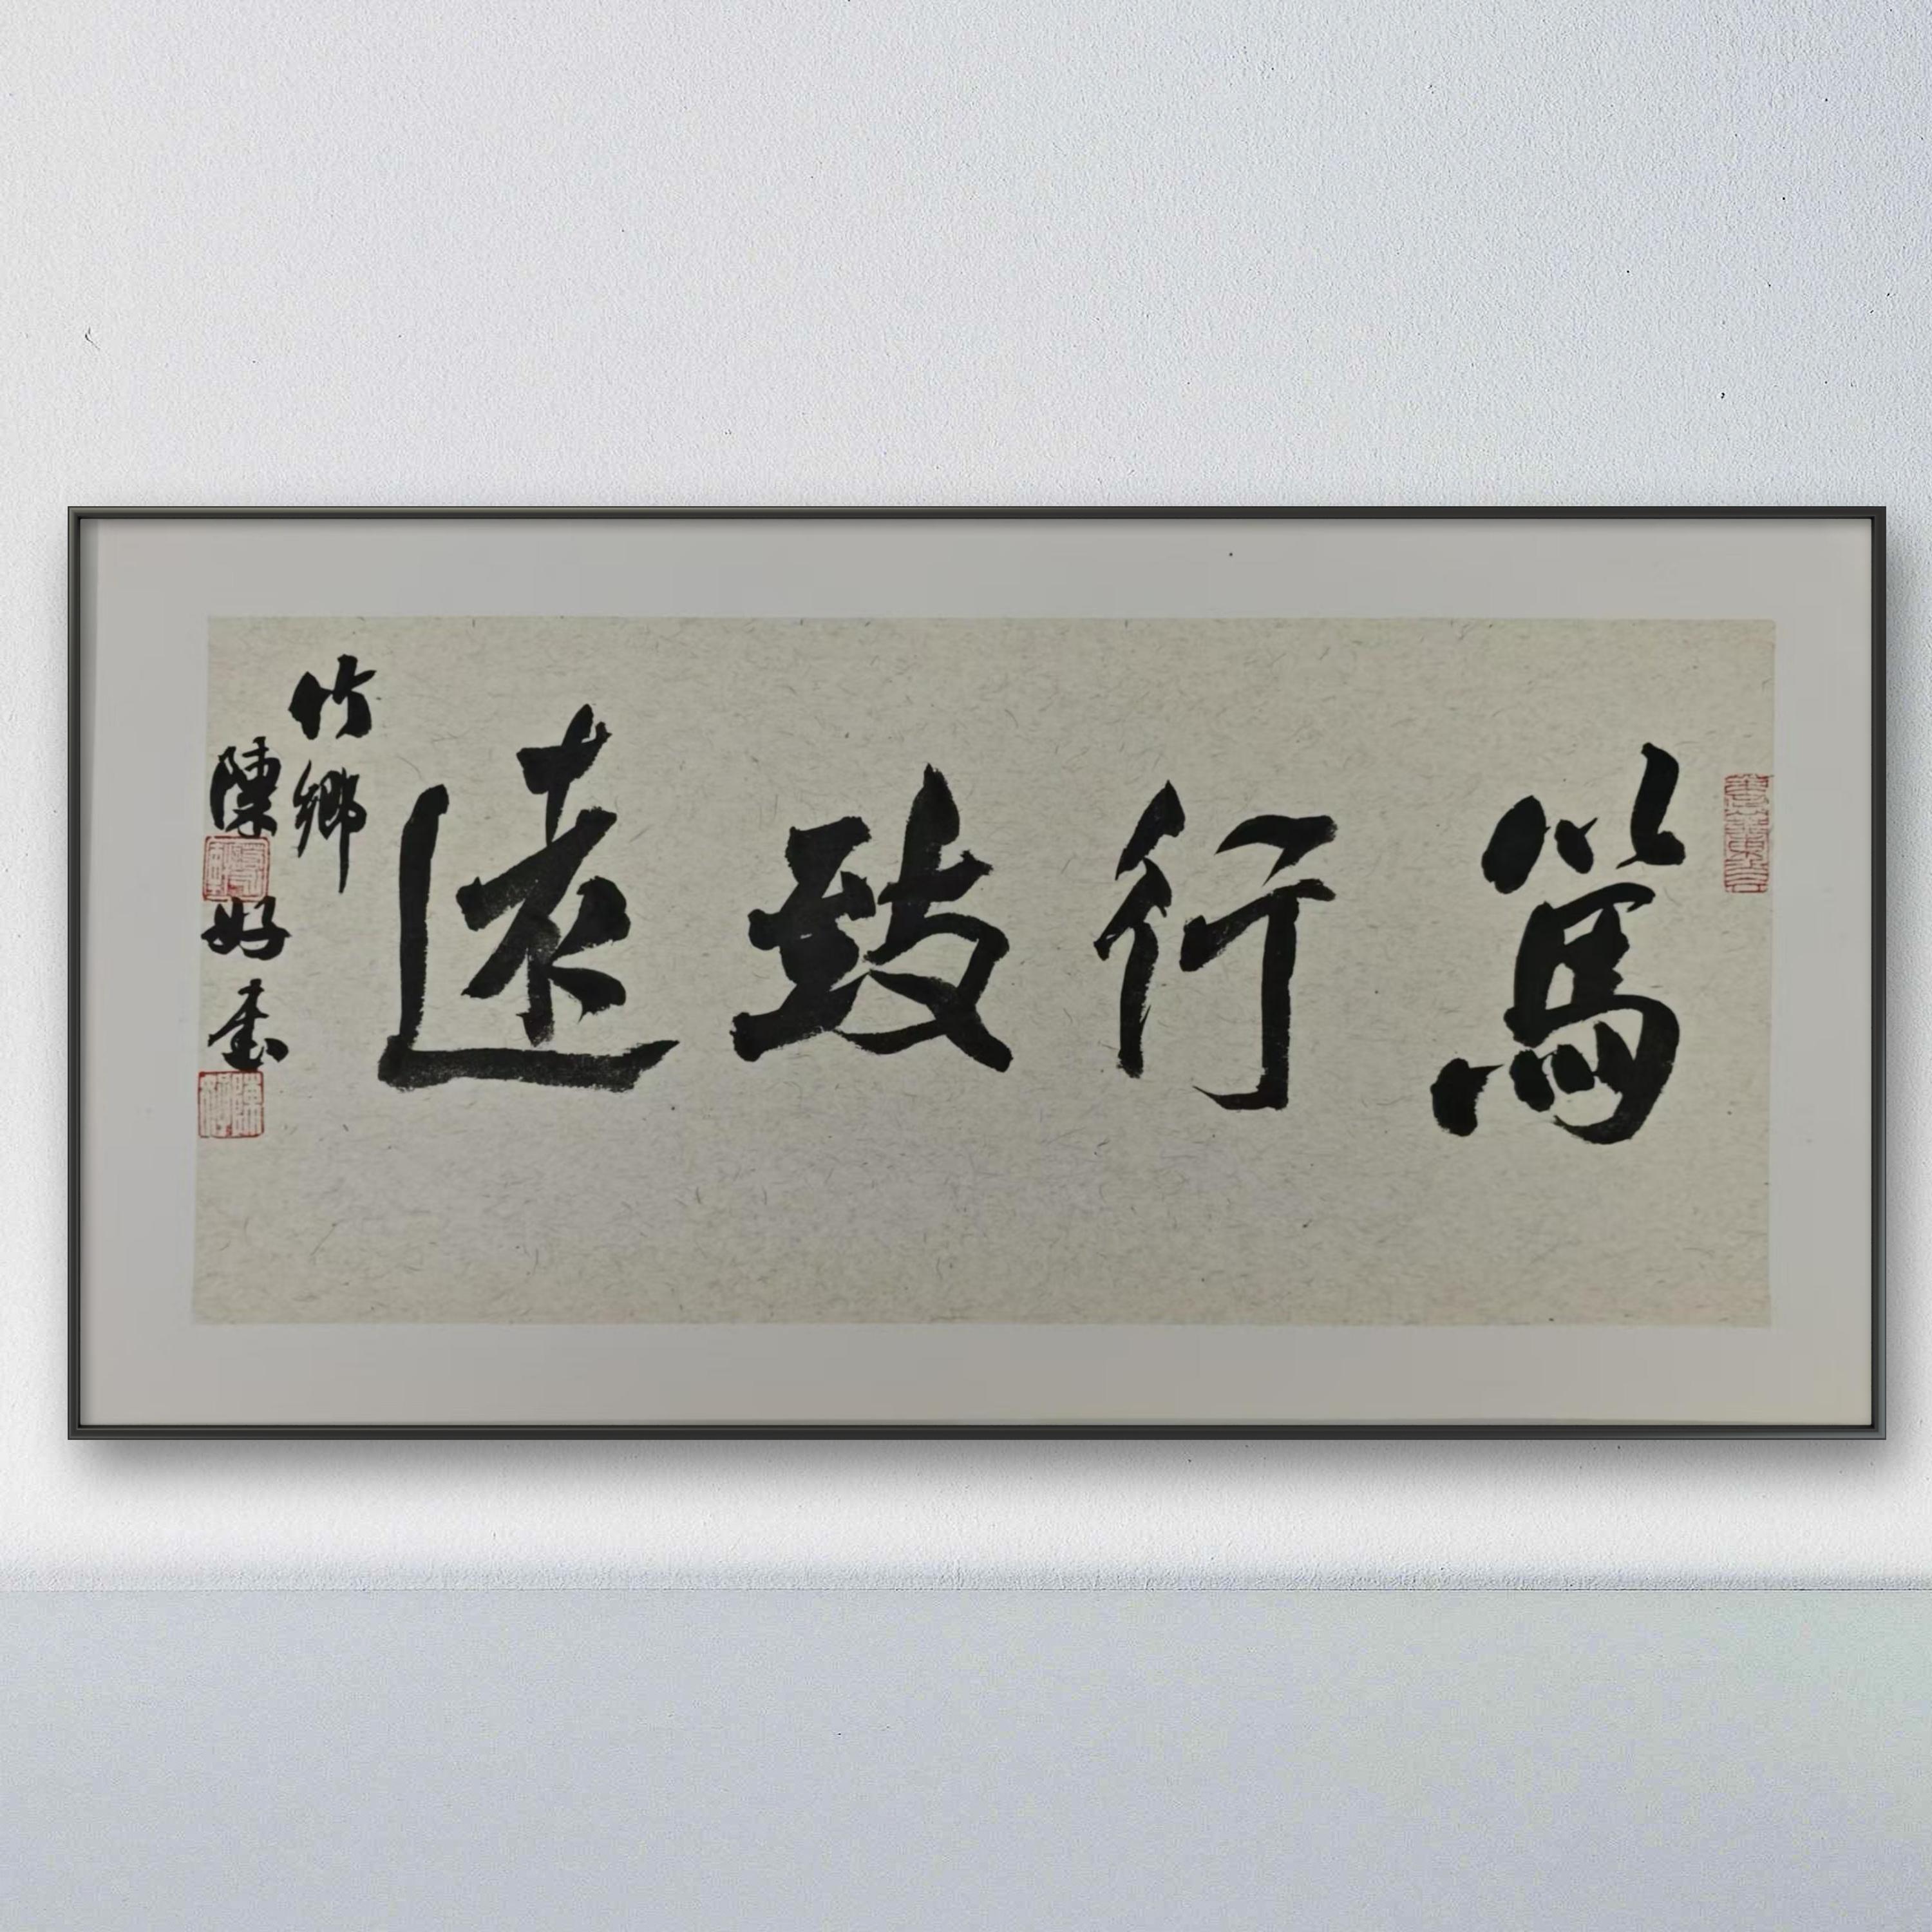 篤行致遠
竹鄉
陳好書